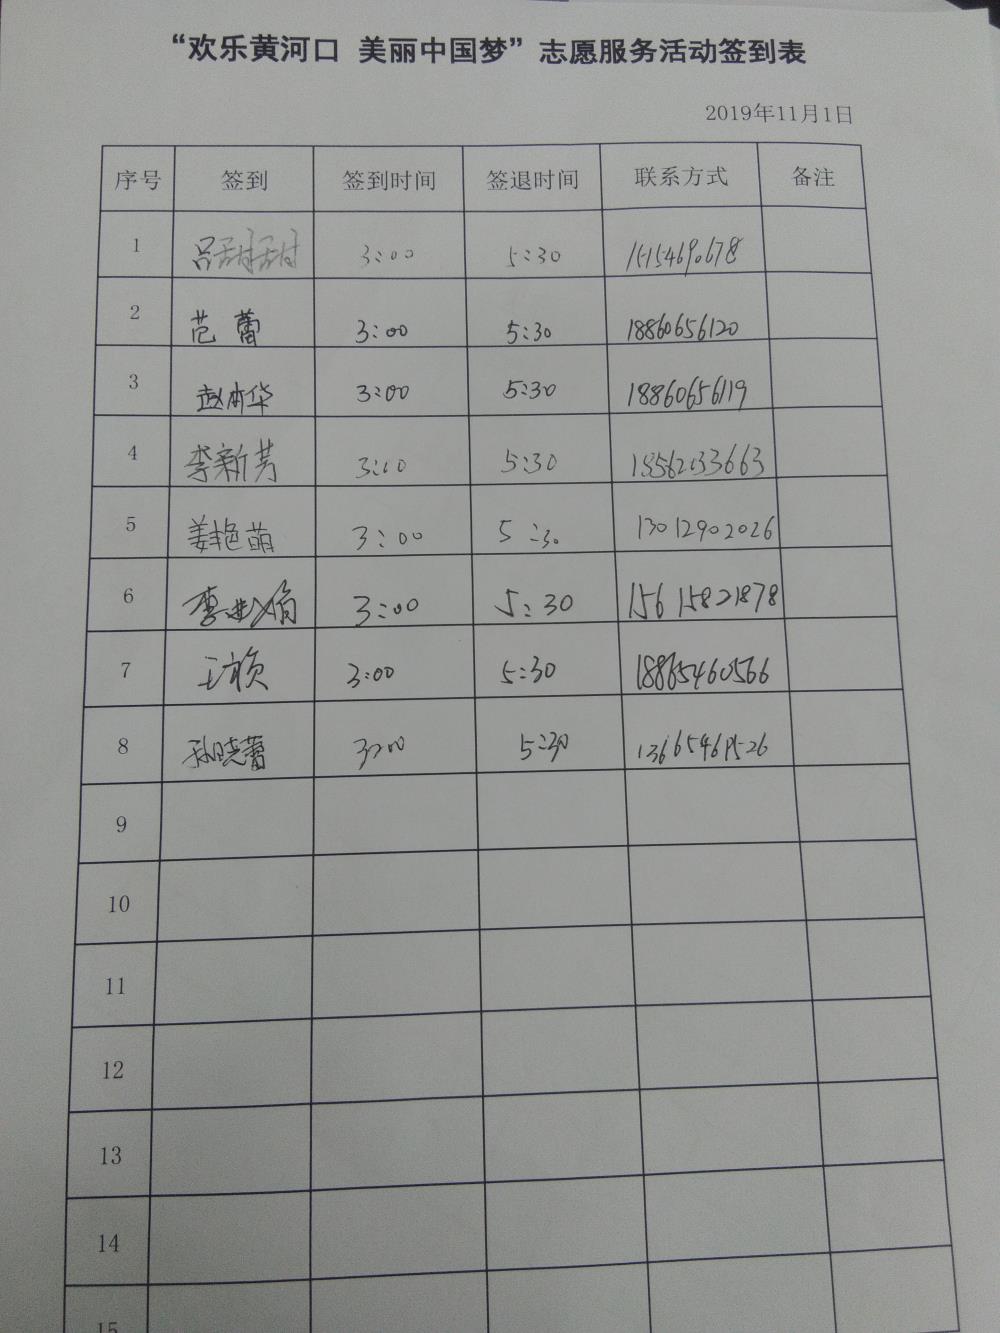 “欢乐黄河口 美丽中国梦”志愿服务活动签到表
2019年11月1日
序号 签到 签到时间 签退时间 联系方式 备注
1 吕甜甜 3:00 5:30
2 范蕾 3:00 5:30 18860656120
3 赵本华 3:00 5:30 18860656119
4 李新芳 3:00 5:30 18562033663
5 姜艳萌 3:00 5:30 13012902026
6 3:00 5:30 15615821878
7 王颖 3:00 5:30 18865460566
8 孙晓蕾 3:00 5:30
9
10
11
12
13
14
15